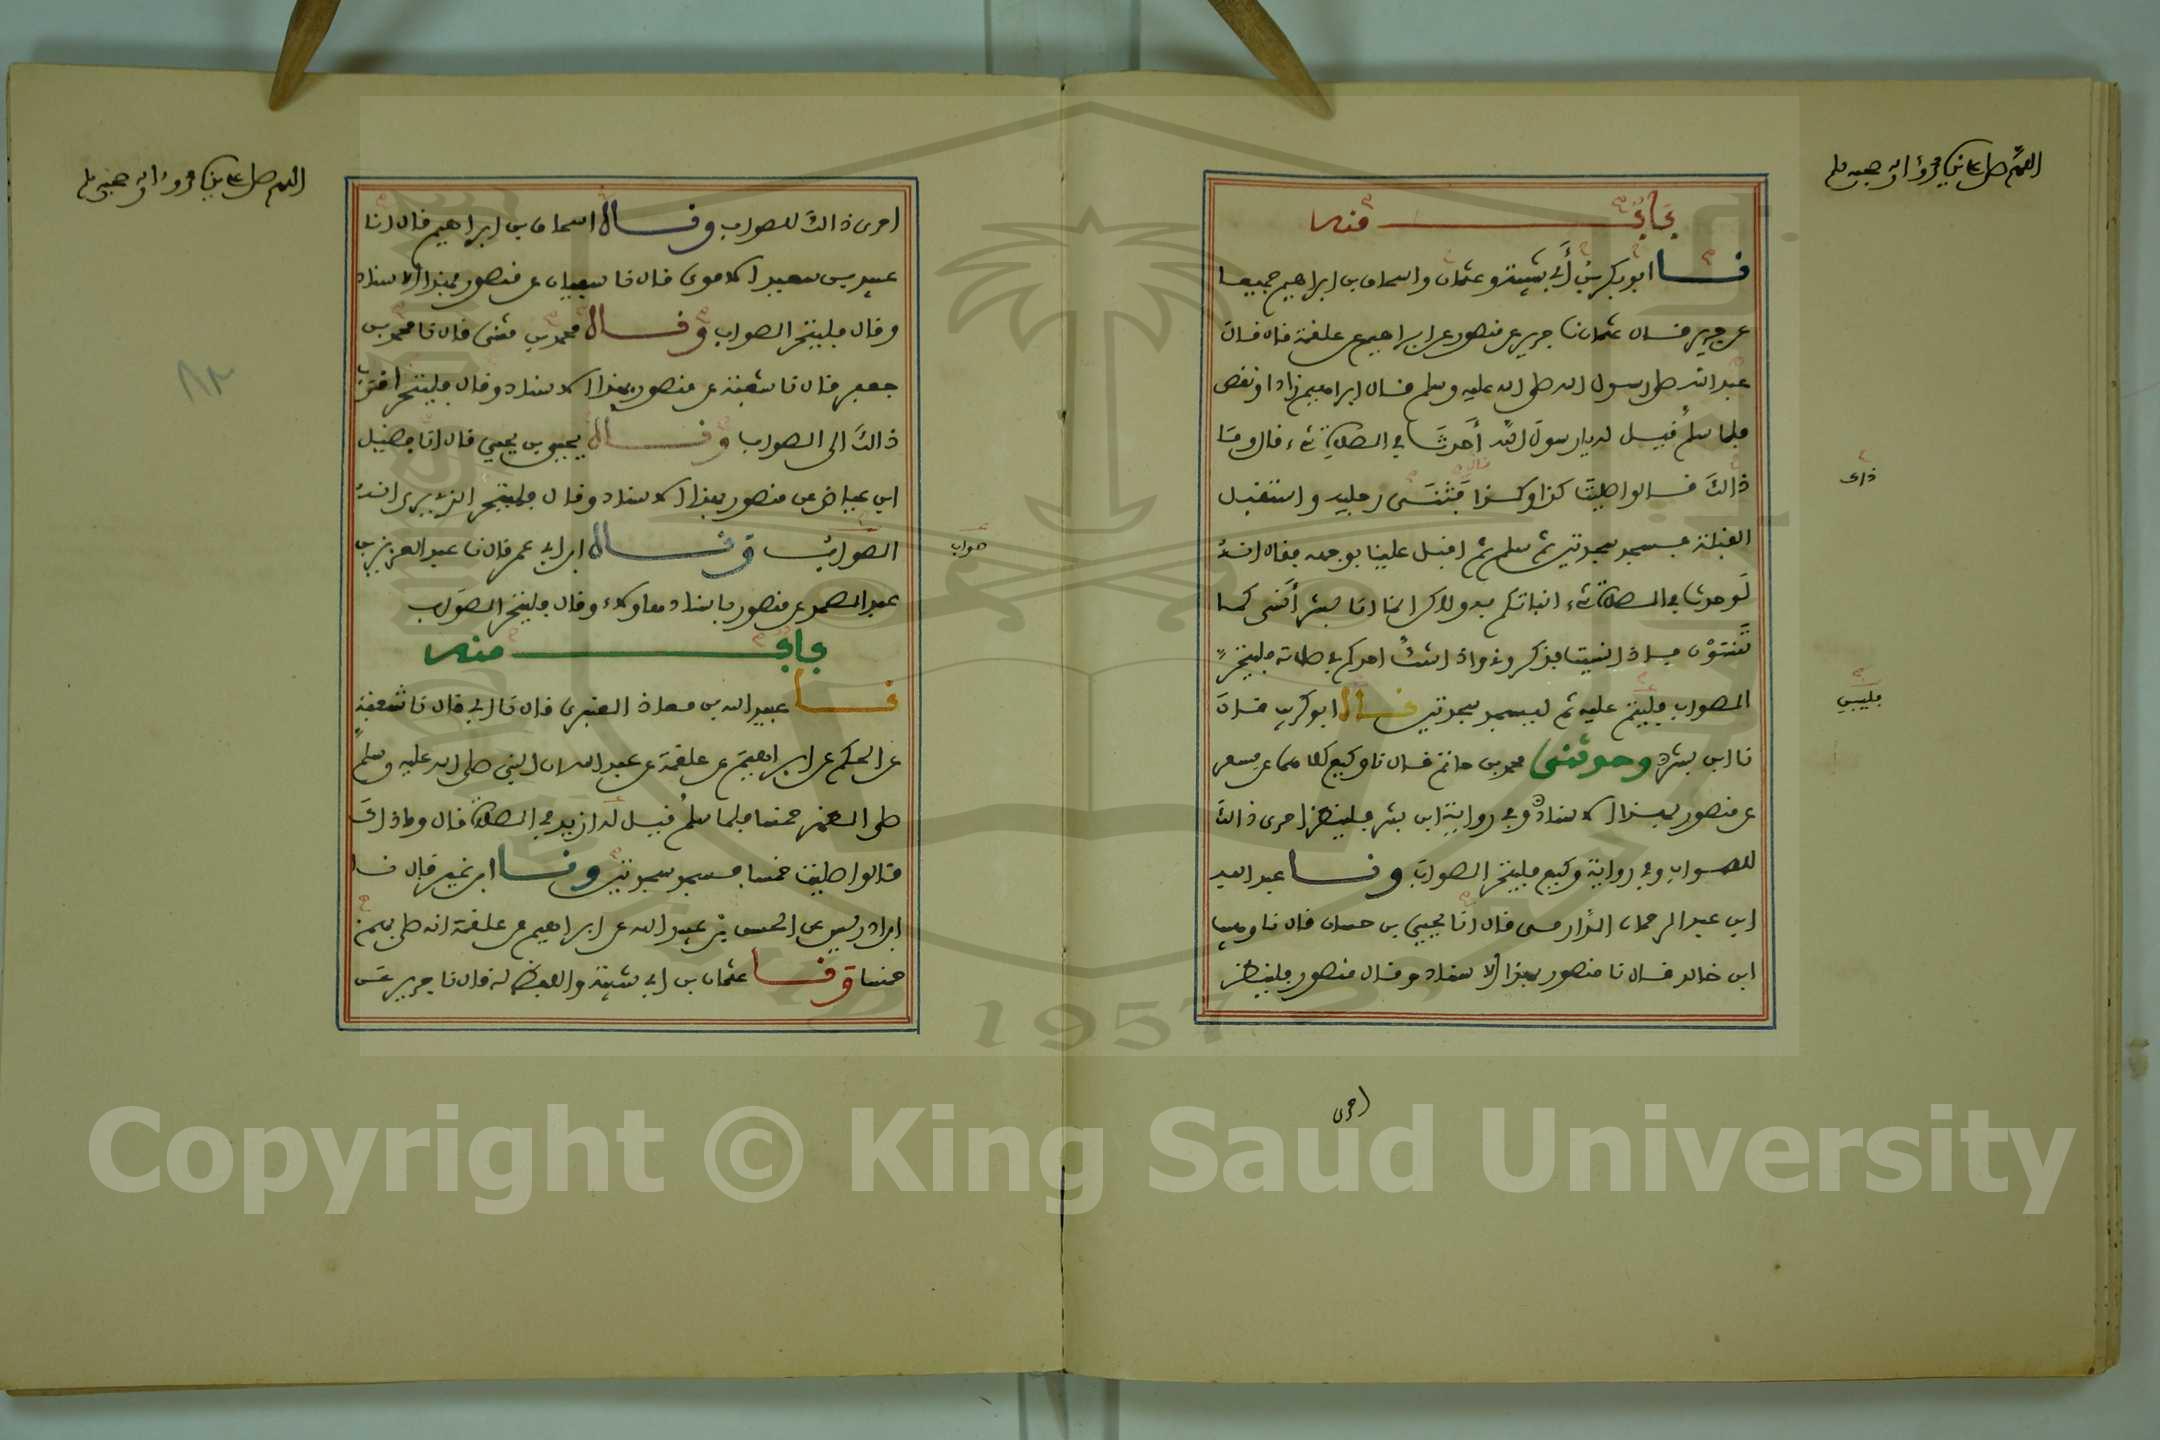 اللهم صل على نبيك محمد وءاله وصحبه وسلم
باب منه
نا ابو بكر بن أبي شيبة وعثمان واسحاق بن ابراهيم جميعا
عن جرير قال عثمان نا جرير عن منصور عن ابراهيم عن علقمة قال قال
عبد الله صلى رسول الله صلى الله عليه وسلم قال ابراهيم زاد او نقص
فلما سلم قيل له يا رسول الله أحدث في الصلاة شيء قال وما
ذاك
ذالك قالوا صليت كذا وكذا فثنى رجليه واستقبل
القبلة فسجد سجدتين ثم سلم ثم اقبل علينا بوجهه فقال انه
لو حدث في الصلاة شيء انباتكم به ولاكن انما انا بشر أنسى كما
تنسون فاذا نسيت فذكروني واذا شك احدكم في صلاته فليتحر
فليبني
الصواب فليتم عليه ثم ليسجد سجدتين قال ابو كريب قال
نا ابن بشر وحدثني محمد بن حاتم قال نا وكيع كلاهما عن مسعر
عن منصور بهذا الاسناد وفي رواية ابن بشر فلينظر احرى ذالك
للصواب وفي رواية وكيع فليتحر الصواب ونا عبد الله
ابن عبد الرحمان الدارمي قال انا يحيى بن حسان قال نا وهيب
ابن خالد قال نا منصور بهذا الاسناد وقال منصور فلينظر
احرى
اللهم صل على نبيك محمد وءاله وصحبه وسلم
احرى ذالك للصواب وقال اسحاق بن ابراهيم قال انا
عبيد بن سعيد الاموي قال نا سفيان عن منصور بهذا الاسناد
وقال فليتحر الصواب وقال محمد بن مثنى قال نا محمد بن
٨٣
جعفر قال نا شعبة عن منصور بهذا الاسناد وقال فليتحر اقرب
ذالك الى الصواب وقال يحيى بن يحيى قال انا فضيل
ابن عياض عن منصور بهذا الاسناد وقال فليتحر الذي يرى انه
صواب
الصواب وقال ابن ابي عمر قال نا عبد العزيز بن
عبد الصمد عن منصور باسناد هاولاء وقال فليتحر الصواب
باب منه
نا عبيد الله بن معاذ العنبري قال نا ابي قال نا شعبة
عن الحكم عن ابراهيم عن علقمة عن عبد الله ان النبي صلى الله عليه وسلم
صلى الظهر خمسا فلما سلم قيل له ازيد في الصلاة قال وما ذاك
قالوا صليت خمسا فسجد سجدتين ونا ابن نمير قال نا
ابن ادريس عن الحسن بن عبيد الله عن ابراهيم عن علقمة انه صلى بهم
خمسا ونا عثمان بن ابي شيبة واللفظ له قال نا جرير عن
Copyright © King Saud University
1957